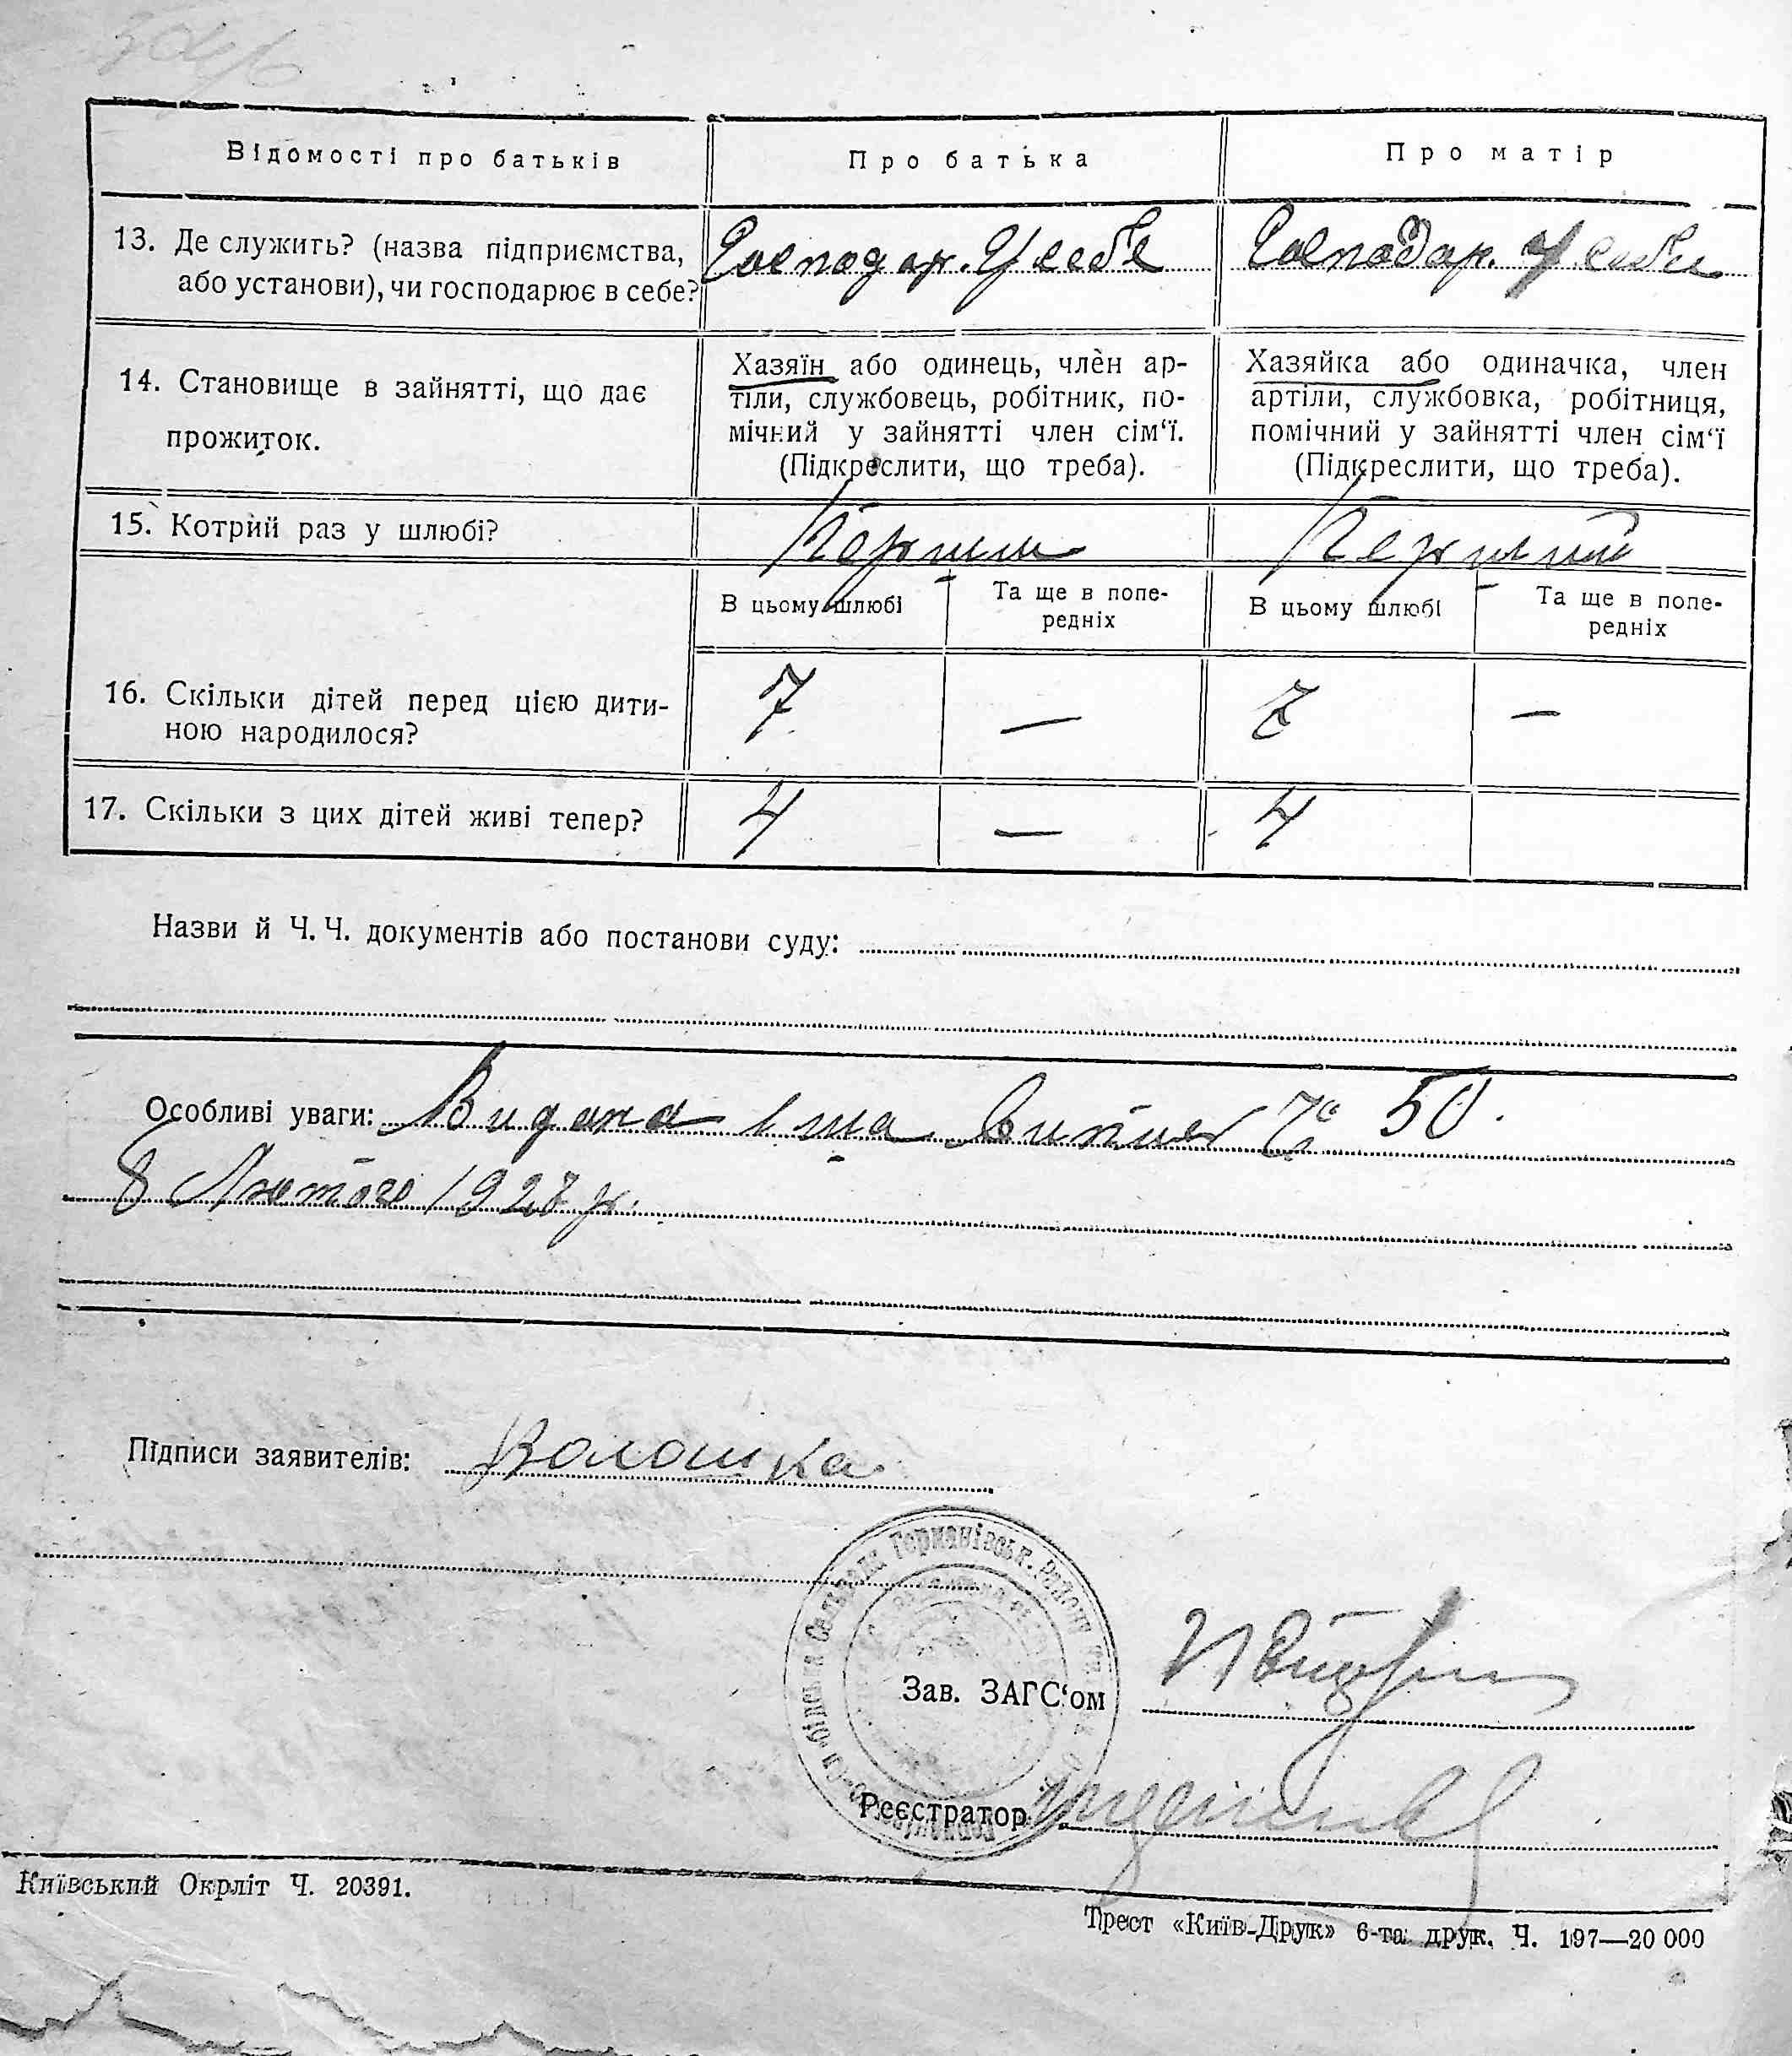 Відомості про батьків
Про батька
Про матір
13. Де служить? (назва підприємства,
або установи), чи господарює в себе?
Господар. У себе
Господар. У себе
14. Становище в зайнятті, що дає
прожиток.
Хазяїн або одинець, член ар-
тіли, службовець, робітник, по-
мічний у зайнятті член сім‘ї.
(Підкреслити, що треба).
Хазяйка або одиначка, член
артіли, службовка, робітниця,
помічний у зайнятті член сім‘ї
(Підкреслити, що треба).
15. Котрий раз у шлюбі?
Перший
В цьому шлюбі
Та ще в попе-
редніх
В цьому шлюбі
Та ще в попе-
редніх
16. Скільки дітей перед цією дити-
ною народилося?
7 — 7 —
17. Скільки з цих дітей живі тепер?
4 — 4
Назви й Ч. Ч. документів або постанови суду:
Особливі уваги: Видана 50.
8 Лютого 1927 р.
Підписи заявителів: Волошка
Сельрада Германівськ. Району
Зав. ЗАГС‘ом
Реєстратор
Київський Окрліт Ч. 20391.
Трест «Київ-Друк» 6-та друк. Ч. 197—20 000